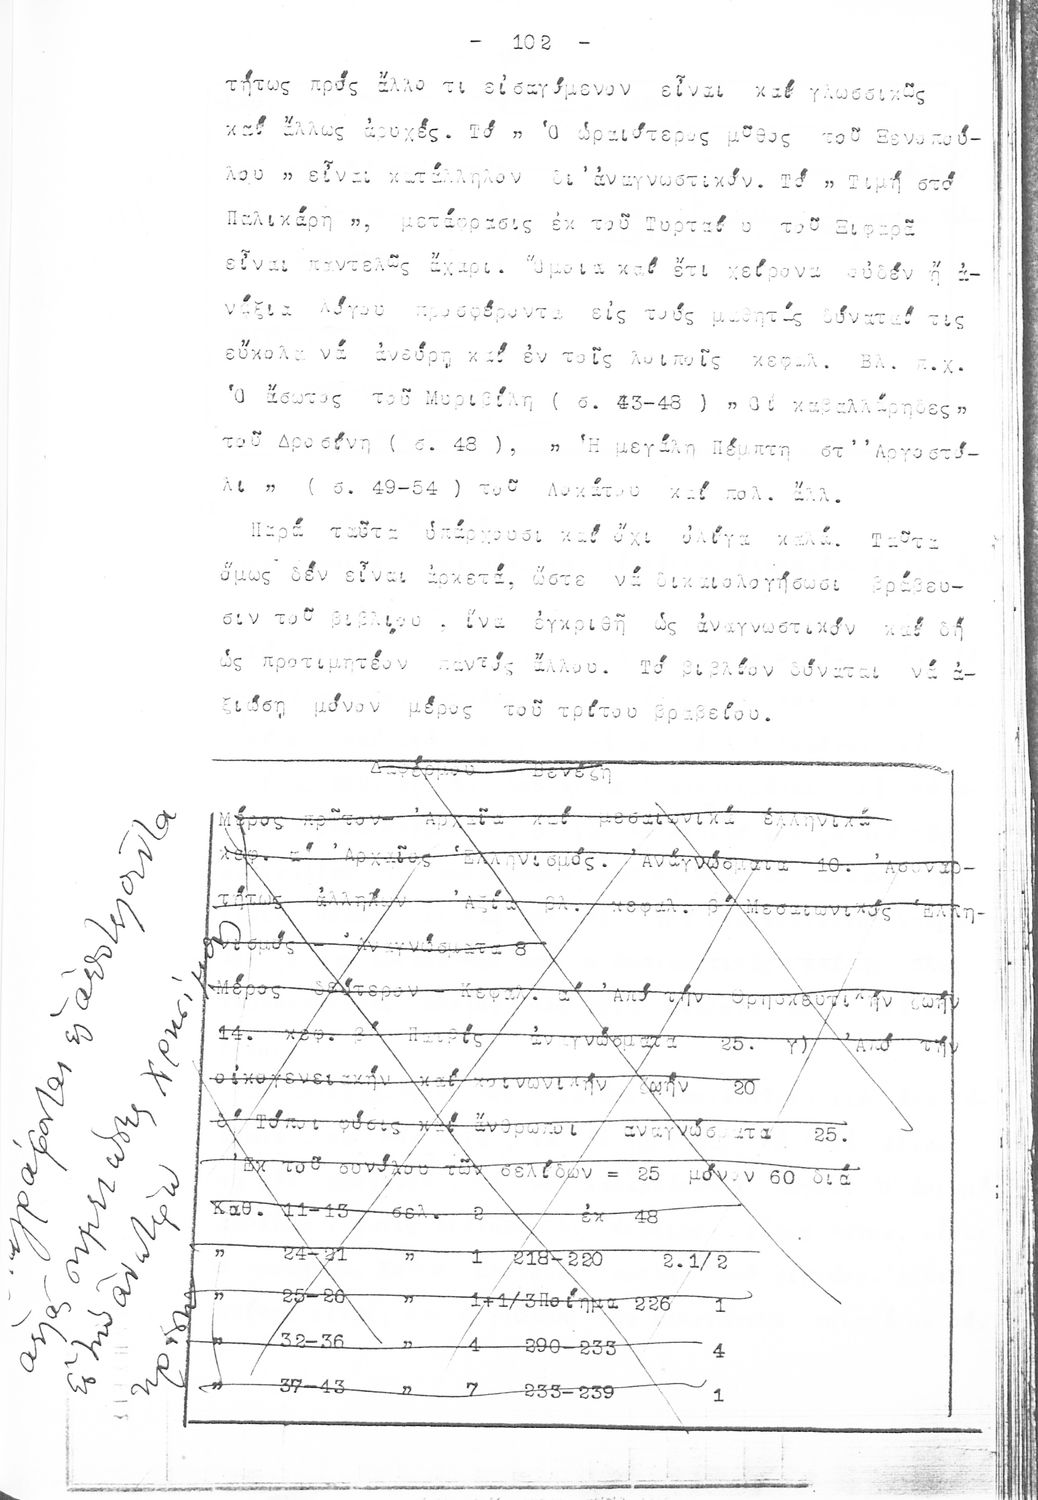 - 102 -
τήτως πρός ἄλλο τι εἰσαγόμενον εἶναι καί γλωσσικῶς
καί ἄλλως ἀρυχές. Τό „ Ὁ ὡραιότερος μῦθος τοῦ Ξενοπού-
λου „ εἶναι κατάλληλον δι'ἀναγνωστικόν. Τό „ Τιμή στό
Παλικάρη „, μετάφρασις ἐκ τοῦ Τυρταί υ τοῦ Σιφαρᾶ
εἶναι παντελῶς ἄχαρι. Ὅμοια καί ἔτι χείρονα οὐδέν ἤ ἀ-
νάξια λόγου προσφέροντα εἰς τούς μαθητάς δύναταί τις
εὔκολα νά ἀνεύρῃ καί ἐν τοῖς λοιποῖς κεφαλ. Βλ. π.χ.
Ὁ ἄσωτος τοῦ Μυριβίλη ( σ. 43-48 ) „ Οἱ καβαλλάρηδες„
τοῦ Δροσίνη ( σ. 48 ), „ Ἡ μεγάλη Πέμπτη στ''Αργοστό-
λι „ ( σ. 49-54 ) τοῦ Λυκάτου καί πολ. ἄλλ.
Παρά ταῦτα ὑπάρχουσι καί ὄχι ὀλίγα καλά. Ταῦτα
ὅμως δέν εἶναι ἀρκετά, ὥστε νά δικαιολογήσωσι βράβευ-
σιν τοῦ βιβλίου , ἵνα ἐγκριθῇ ὡς ἀναγνωστικόν καί δή
ὡς προτιμητέον παντός ἄλλου. Τό βιβλίον δύναται νά ἀ-
ξιώσῃ μόνον μέρος τοῦ τρίτου βραβείου.
Βενέζη
Μέρος πρῶτον- Ἀρχαῖα καί μεσαιωνικά ἑλληνικά
κεφ. α' Ἀρχαῖος Ἑλληνισμός. Ἀναγνώσματα 10. Ἀσυναρ-
τήτως ἀλλήλων - Ἀξία βλ. κεφαλ. β' Μεσαιωνικός Ἑλλη-
νισμός - Ἀναγνώσματα 8
Μέρος δεύτερον - Κεφαλ. α' Ἀπό τήν θρησκευτικήν ζωήν
14. κεφ. β' Πατρίς ἀναγνώσματα 25. γ) Ἀπό τήν
οἰκογενειακήν καί κοινωνικήν ζωήν 20
δ' Τόποι φύσις καί ἄνθρωποι ἀναγνώσματα 25.
Ἐκ τοῦ συνόλου τῶν σελίδων = 25 μόνον 60 διά
Καθ. 11-13 σελ. 2 ἐκ 48
„ 24-21 „ 1 218-220 2.1/2
„ 25-26 „ 1+1/3 Ποίημα 226 1
„ 32-36 „ 4 290-233 4
„ 37-43 „ 7 233-239 1